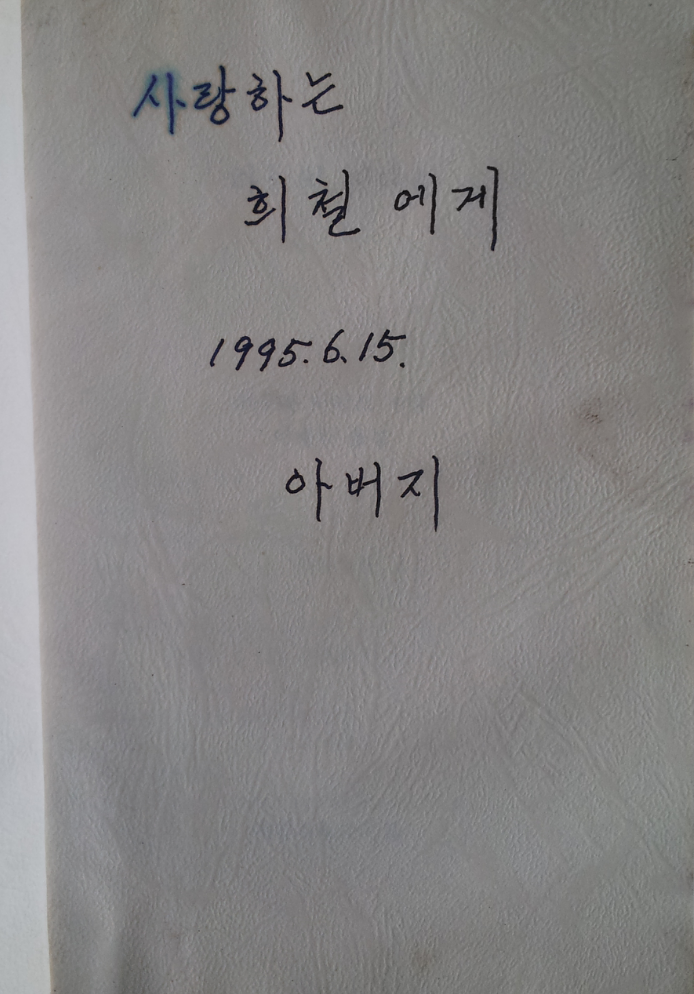 사랑하는
희철에게
1995.6.15.
아버지